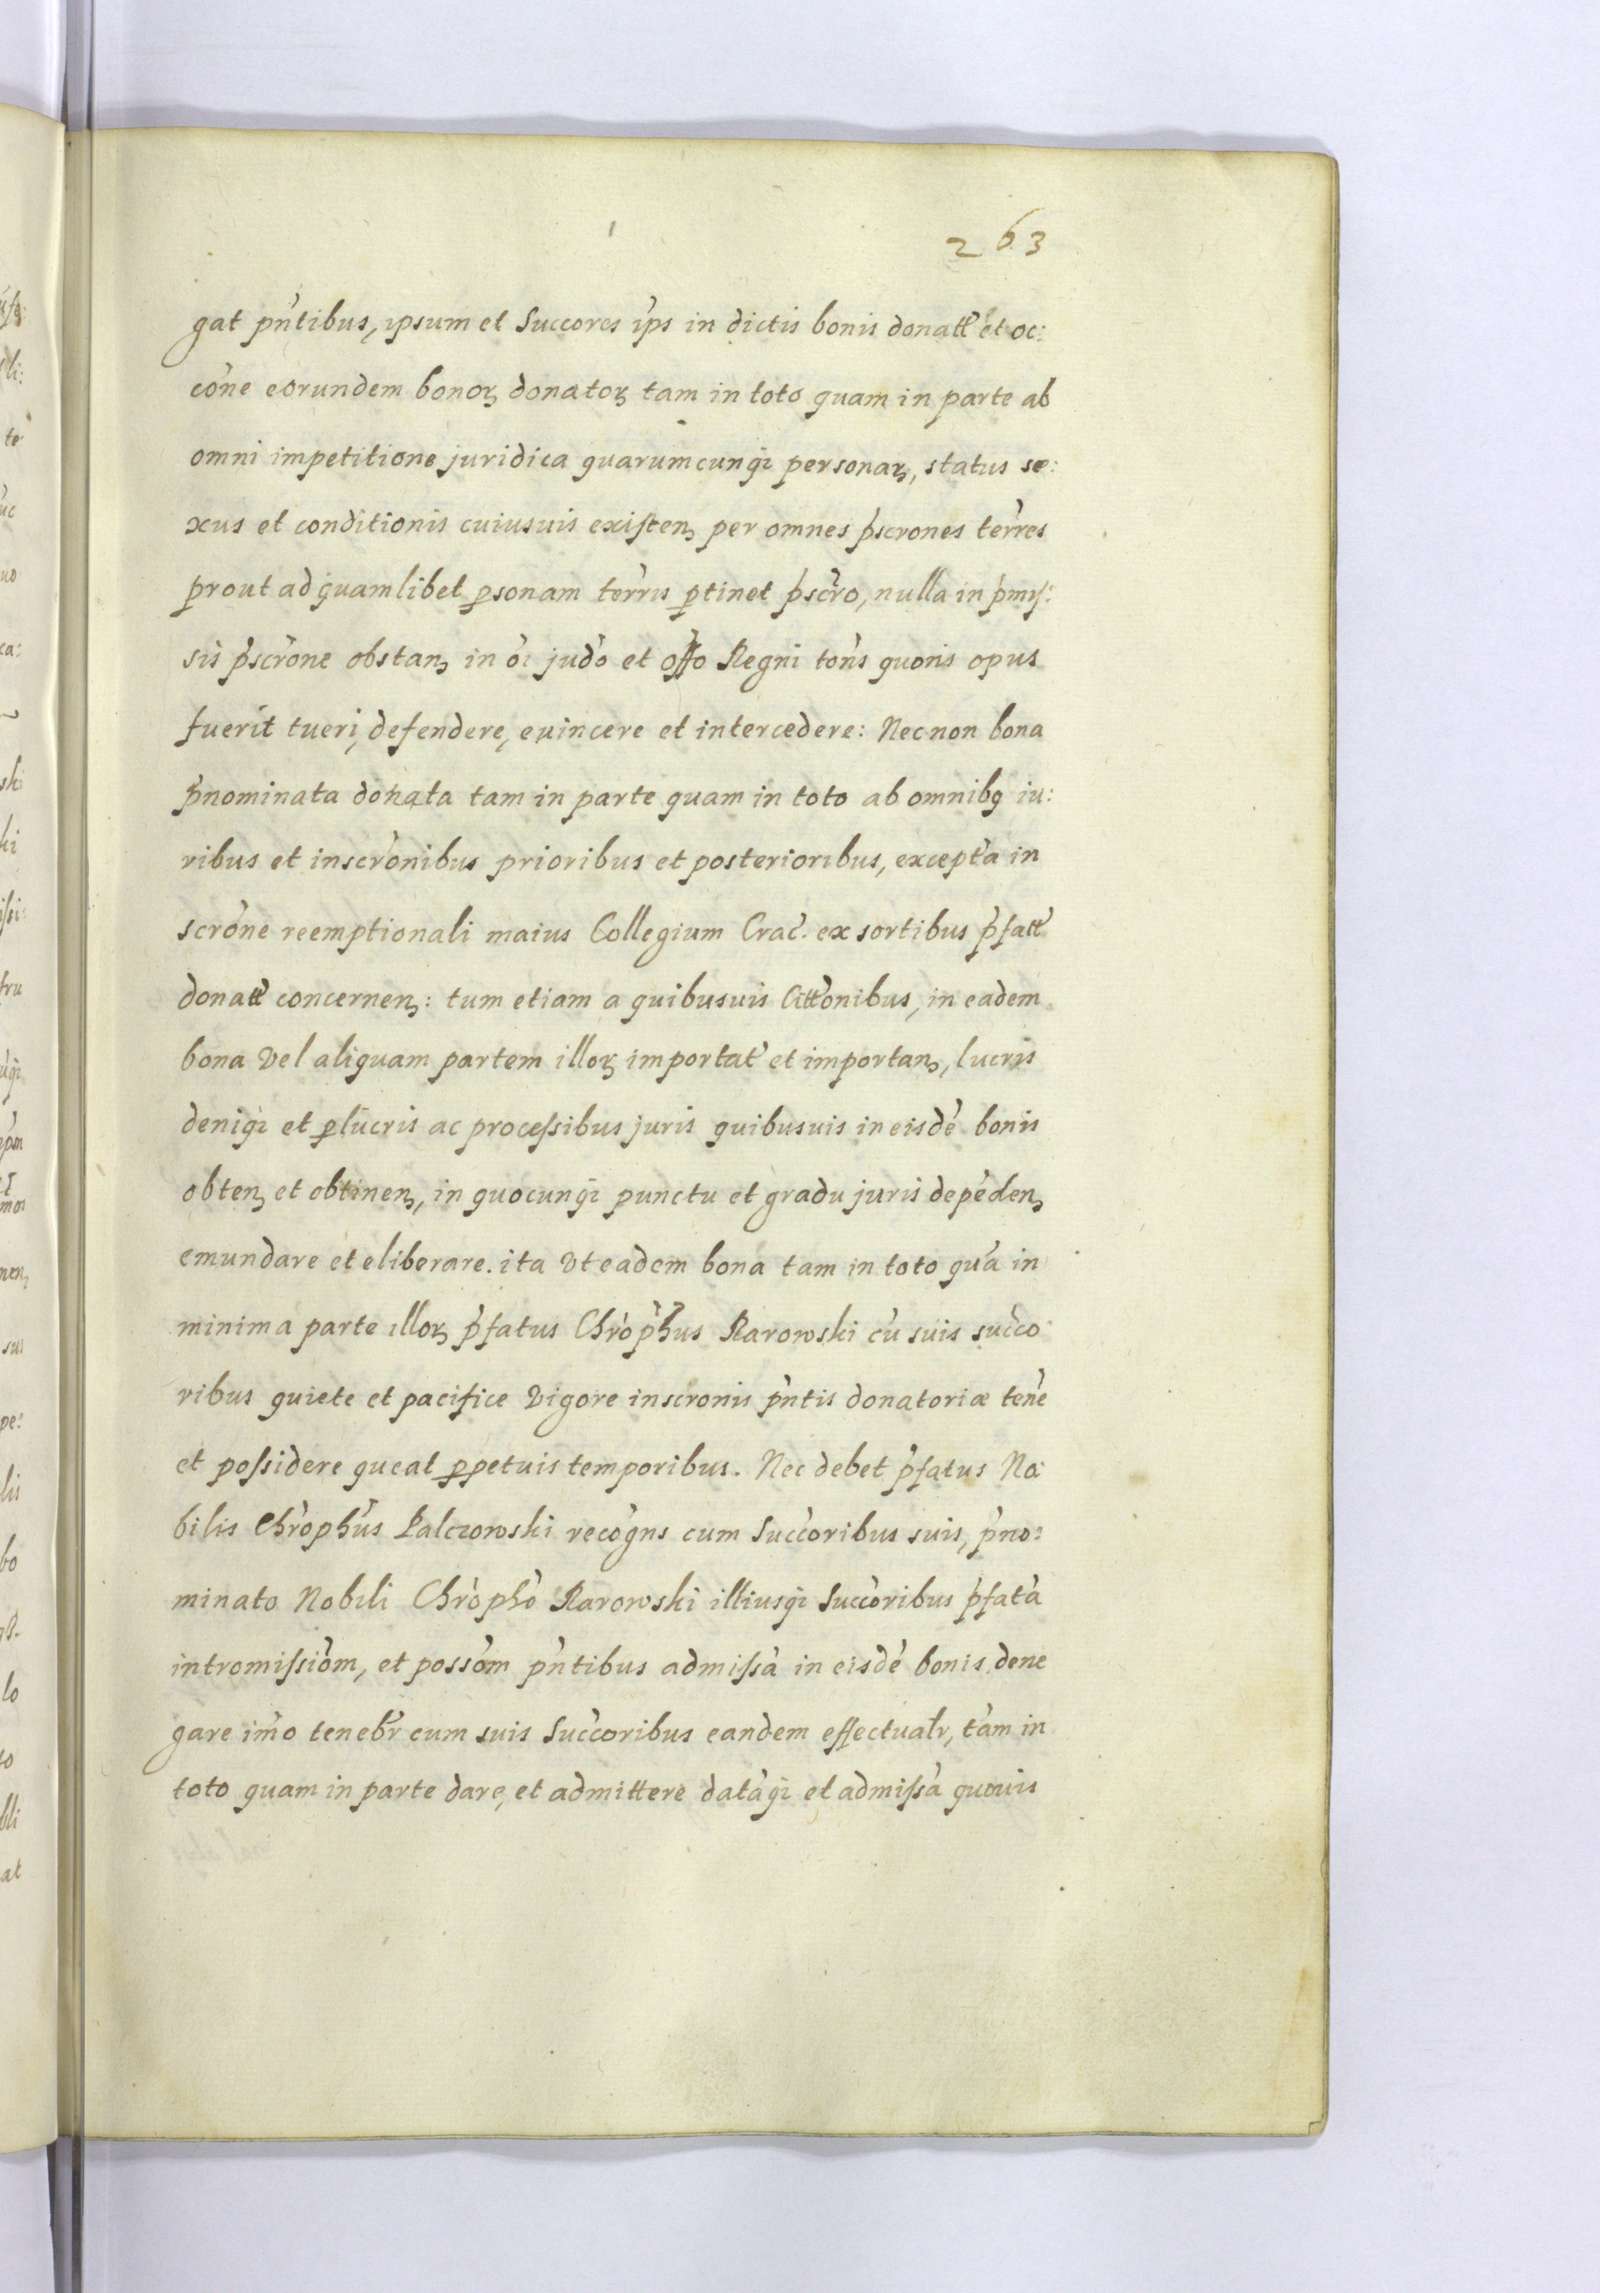 263
gat pn̄tibus, ipsum et Succores ip̄s in dictis bonis donatt̄ et oc:
cōne eorundem bonoꝝ donatoꝝ tam in toto quam in parte ab
omni impetitione juridica quarumcunqꝫ personaꝝ, status se:
xus et conditionis cuiusuis existenꝫ per omnes p̄scrones terr̄es
prout ad quamlibet ꝑsonam terr̄is ꝑtinet p̄scr̄o, nulla in p̄mis:
sis p̄scr̄one obstanꝫ in ōi jud̄o et off̄o Regni ton̄s quoris opus
fuerit tueri, defendere, euincere et intercedere: Nec non bona
p̄nominata donata tam in parte quam in toto ab omnibꝗ iu:
ribus et inscr̄onibus prioribus et posterioribus, excepta in
scrōne reemptionali maius Collegium Crac̄. ex sortibus p̄fatt̄
donatt̄ concernenꝫ: tum etiam a quibusuis Citt̄onibus, in eadem
bona vel aliquam partem illoꝝ importat̄ et importanꝫ, lucris
deniqꝫ et ꝑlucris ac processibus juris quibusuis in eisdē bonis
obtenꝫ et obtinenꝫ, in quocunqꝫ punctu et gradu juris depēdenꝫ
emundare et eliberare. ita vt eadem bona tam in toto quā in
minima parte illoꝝ p̄fatus Chrōph̄us Rarowski cū suis succo
ribus quiete et pacifice vigore inscronis pn̄tis donatoriæ tenē
et possidere queat ꝑpetuis temporibus. Nec debet p̄fatus No:
bilis Chrōph̄us Palczowski recogn̄s cum Succ̄oribus suis, p̄no:
minato Nobili Chrōphō Rarowski illiusqꝫ Succ̄oribus p̄fatā
intromissiōm, et possōm pn̄tibus admissā in eisdē bonis dene
gare im̄o teneb̄r cum suis Succ̄oribus eandem effectualr̄, tam in
toto quam in parte dare, et admittere datāqꝫ et admissā quouis